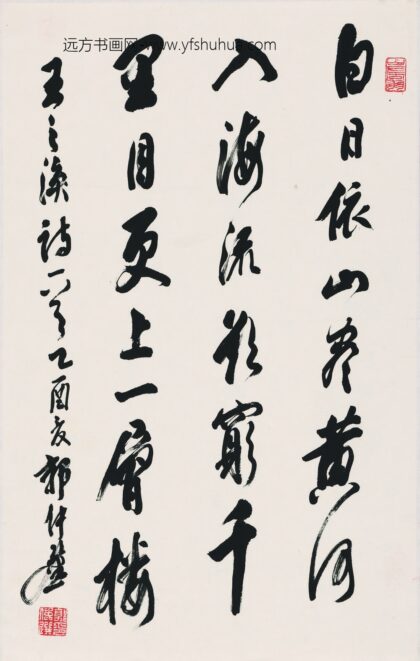 远方书画网 www.yfshuhua.com
白日依山尽黄河
入海流欲窮千
里目更上一層楼
王之渙詩一首乙酉夏郭仲選